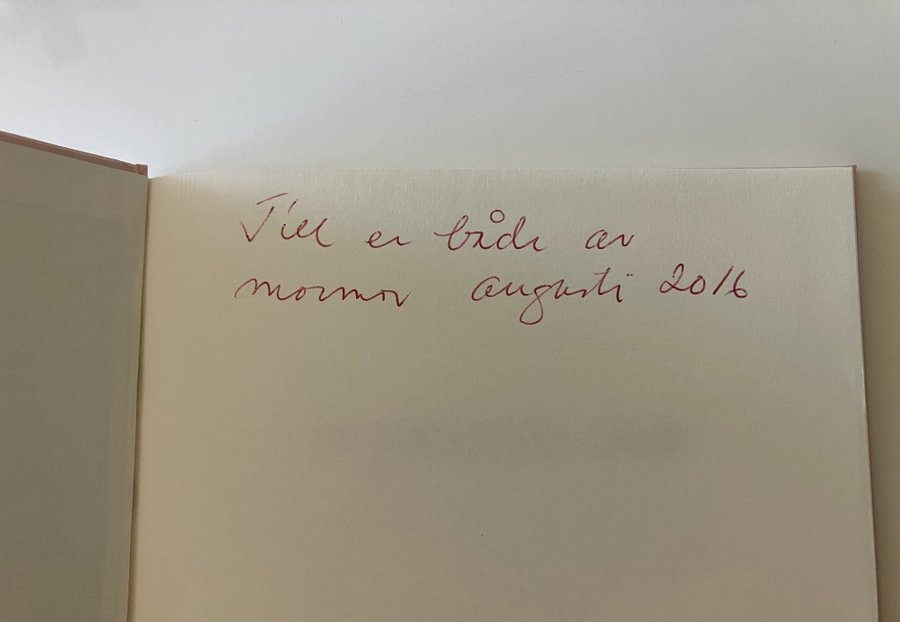 Till er både av
mormor augusti 2016